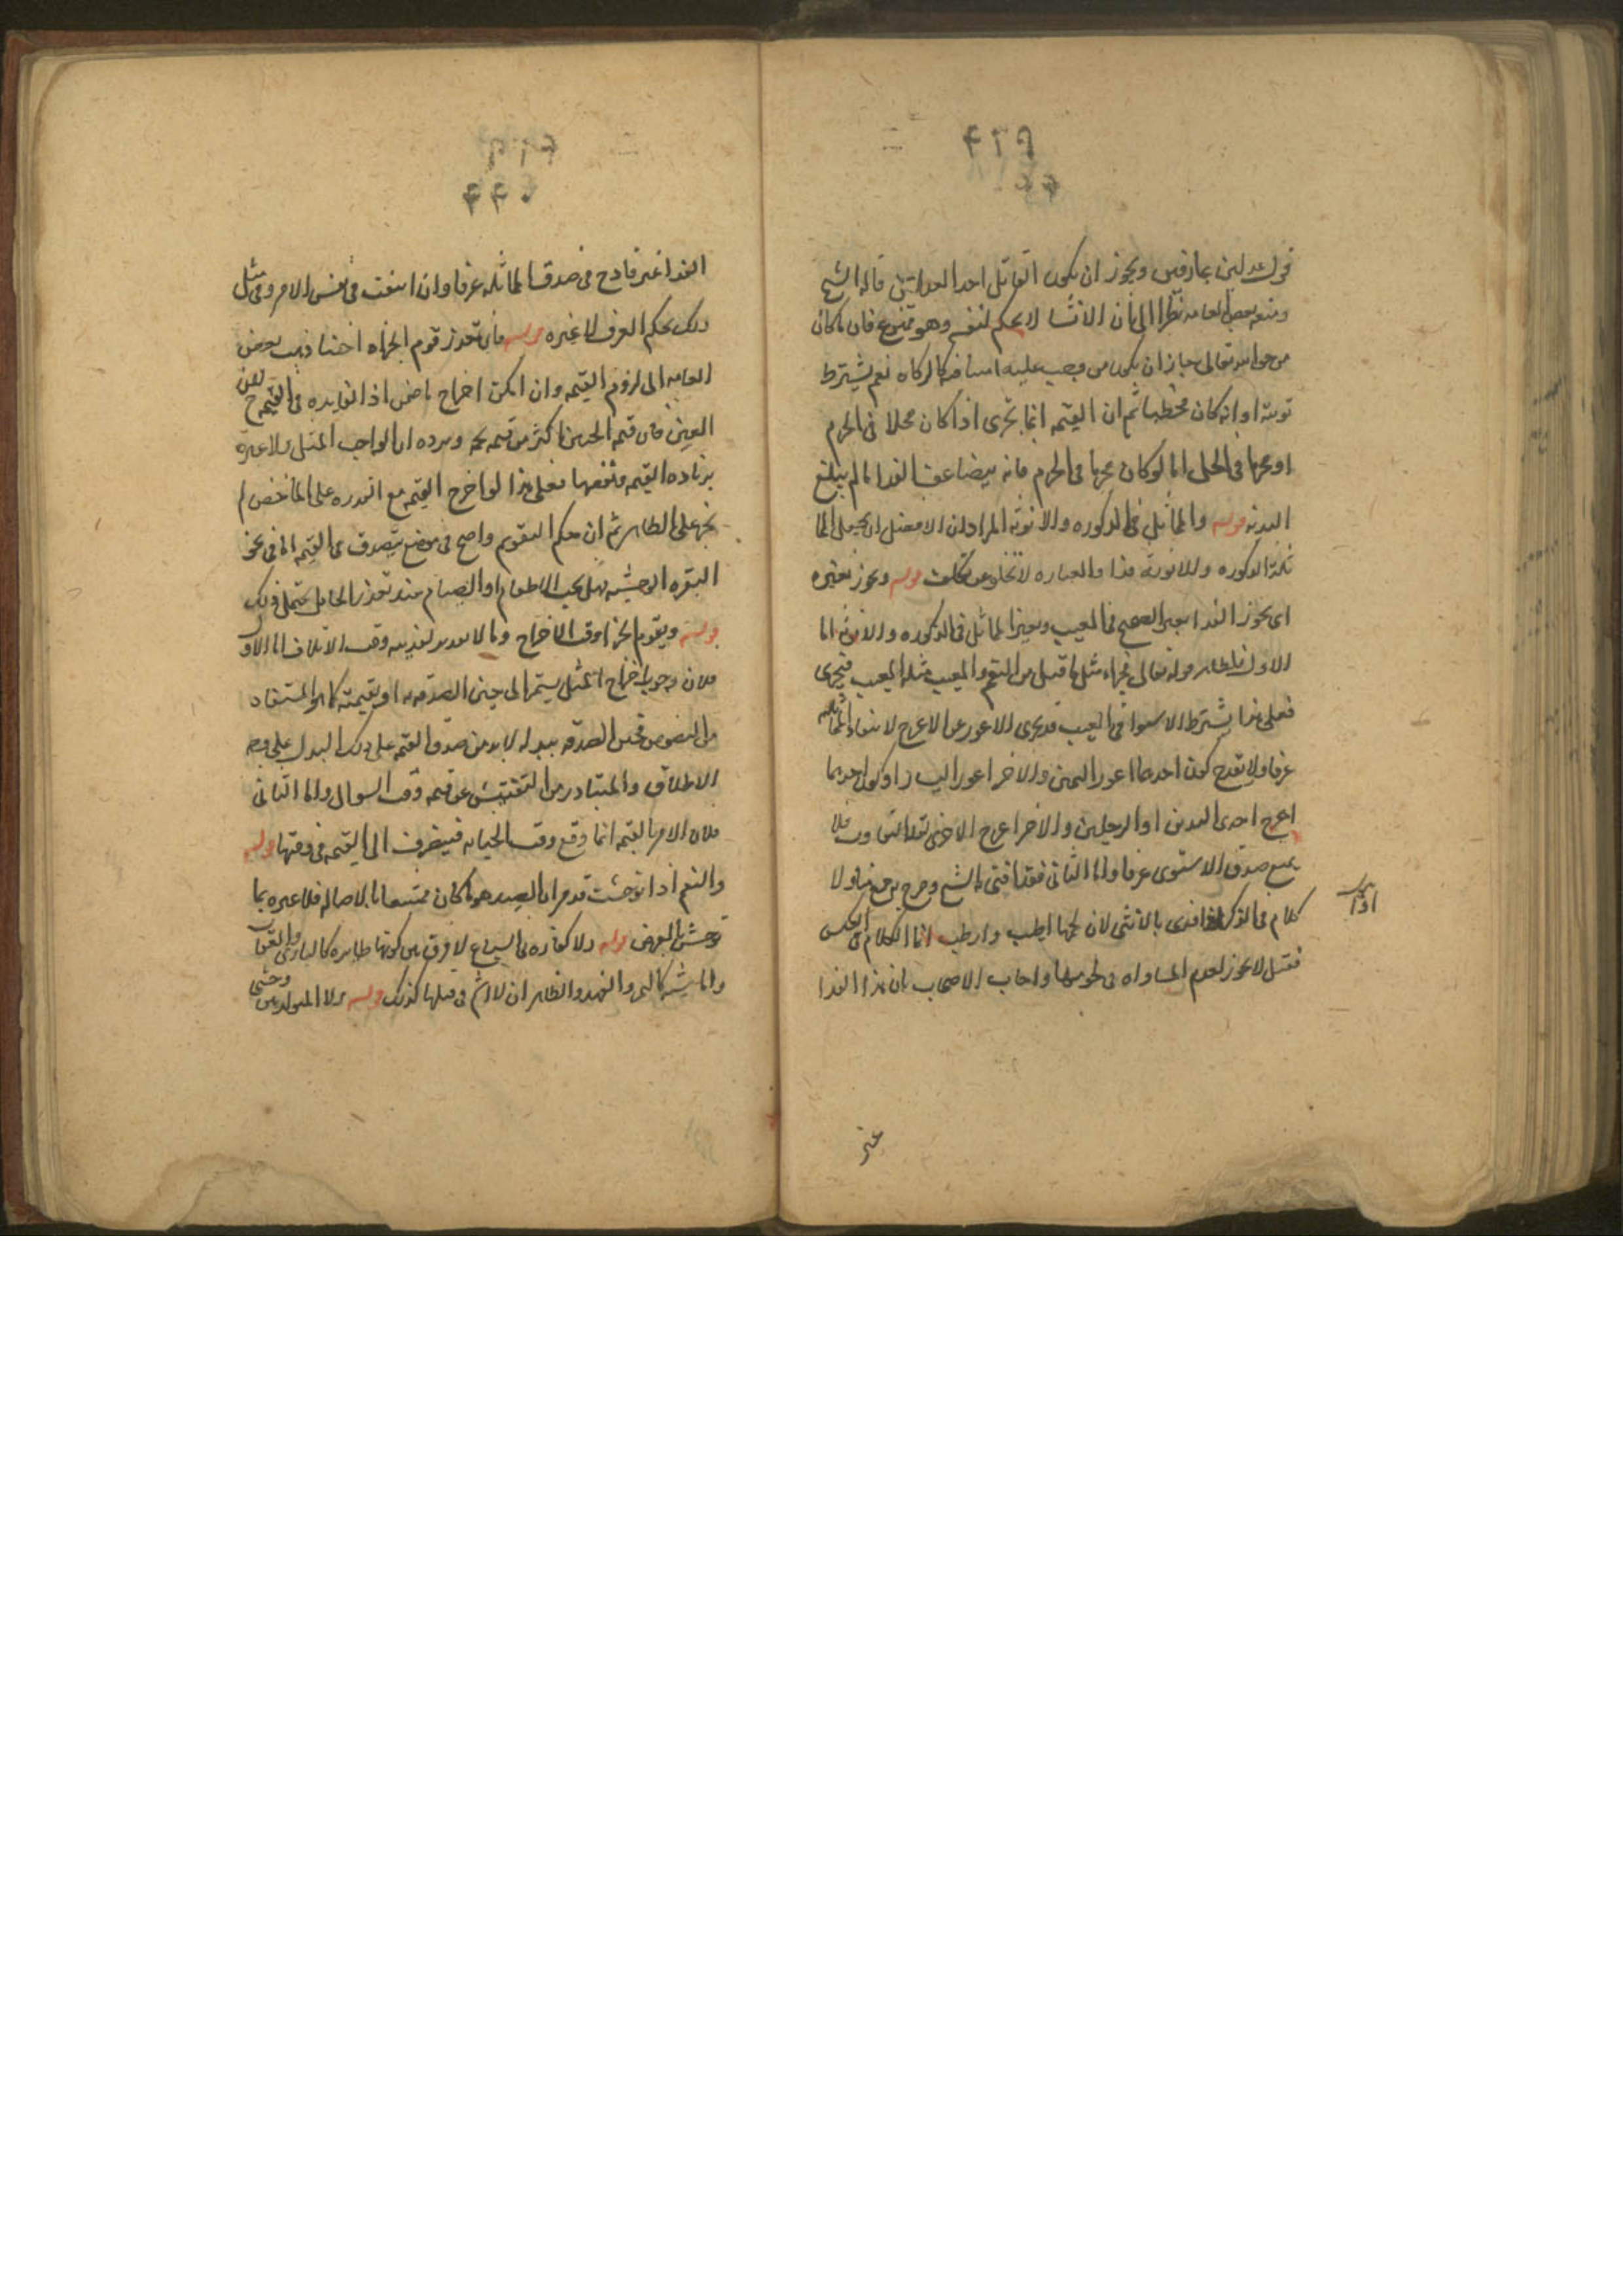 قول عدلين عارفين ويجوز ان يكون القاتل احد العدلين قاله الشيخ
ومنعه بعض العامه نظرا الى ان الانسان لا يحكم لنفسه وهو ممنوع فان ما كان
من حق الله تعالى جاز ان يكون من وجب عليه امينا فيه كالزكاه نعم يشترط
توبته او انه كان مخطيا ثم ان القيمه انما تجزى اذا كان محلا فى الحرم
او محرما فى الحل اما لو كان محرما فى الحرم فانه يضاعف الفدا ما لم يبلغ
البدنه قوله والمماثل فى الذكوره والانوثه المراد ان الافضل ان
ثلة الذكوره وللانوثة هذا والعباره لا تخلو عن تكلف قوله ويجوز بغيره
اى يجوز الفدا بغير الصحيح فى المعيب وبغير المماثل فى الذكوره والانوثه اما
الاول فلظاهر قوله تعالى فجزاء مثل ما قتل من النعم والمعيب مثله المعيب فيجزى
فعلى هذا يشترط الاستوا فى العيب فلا يجزى الاعور عن الاعرج لانتفاء المماثله
عرفا ولا يقدح كون احدهما اعور اليمين والاخر اعور اليسار او كون احدهما
اعرج احدى اليدين او الرجلين والاخر اعرج الاخرى لقله التفاوت فلا
يمنع صدق الاستوى عرفا واما الثانى فقد افتى به الشيخ وصرح به جمع منا ولا
كلام فى الذكر اذا فدى بالانثى لان لحمها اطيب وارطب انما الكلام فى العكس
اذا
فقيل لا يجوز لعدم المساواه فى لحومها واجاب الاصحاب بان هذا الفدا
غير
الفدا غير قادح فى صدق المماثله عرفا وان انتفت فى نفس الامر وفى مثل
ذلك يحكم العرف لا غيره قوله فان تعذر قوم الجزاء اختنا ذهب بعض
العامه الى لزوم القيمه وان امكن اخراج ماخض اذ الفايده فى القيمه لا فى
العين فان قيمه الحيين اكثر من قيمه لحمه ويرده ان الواجب المثل ولا عبرة
بزياده القيمه ونقصها فعلى هذا لو اخرج القيمه مع القدره على الماخض لم
يجز على الظاهر ثم ان حكم التقويم واضح فى موضع يتصدق فى القيمه اما فى نحو
البقره الوحشيه فهل يجب الاطعام او الصيام عند تعذر الحامل يحتمل ذلك
قوله ويقوم الجزا وقت الاخراج وما لا تقدير لفديته وقت الاتلاف اما الاول
فلان وجوب اخراج المثل يستمر الى حين الصدقه به او بقيمته كما هو المستفاد
من النصوص فحين الصدقه ببدله لابد من صدق القيمه على ذلك البدل على وجه
الاطلاق والمتبادر من التفتيش عن قيمه وقت السوال واما الثانى
فلان الامر بالقيمه انما وقع وقت الجنايه فينصرف الى القيمه فى وقتها قوله
والنعم اذا توحشت قد مر ان الصيد هو ما كان ممتنعا بالاصاله فلا عبره بما
توحش بالعرض قوله ولا كفاره فى السباع لا فرق بين كونها طايره كالبازى والعقاب
او ماشيه كالنمر والفهد والظاهر ان لا اثم فى قتلها كذلك قوله ولا المتولد بين وحشى